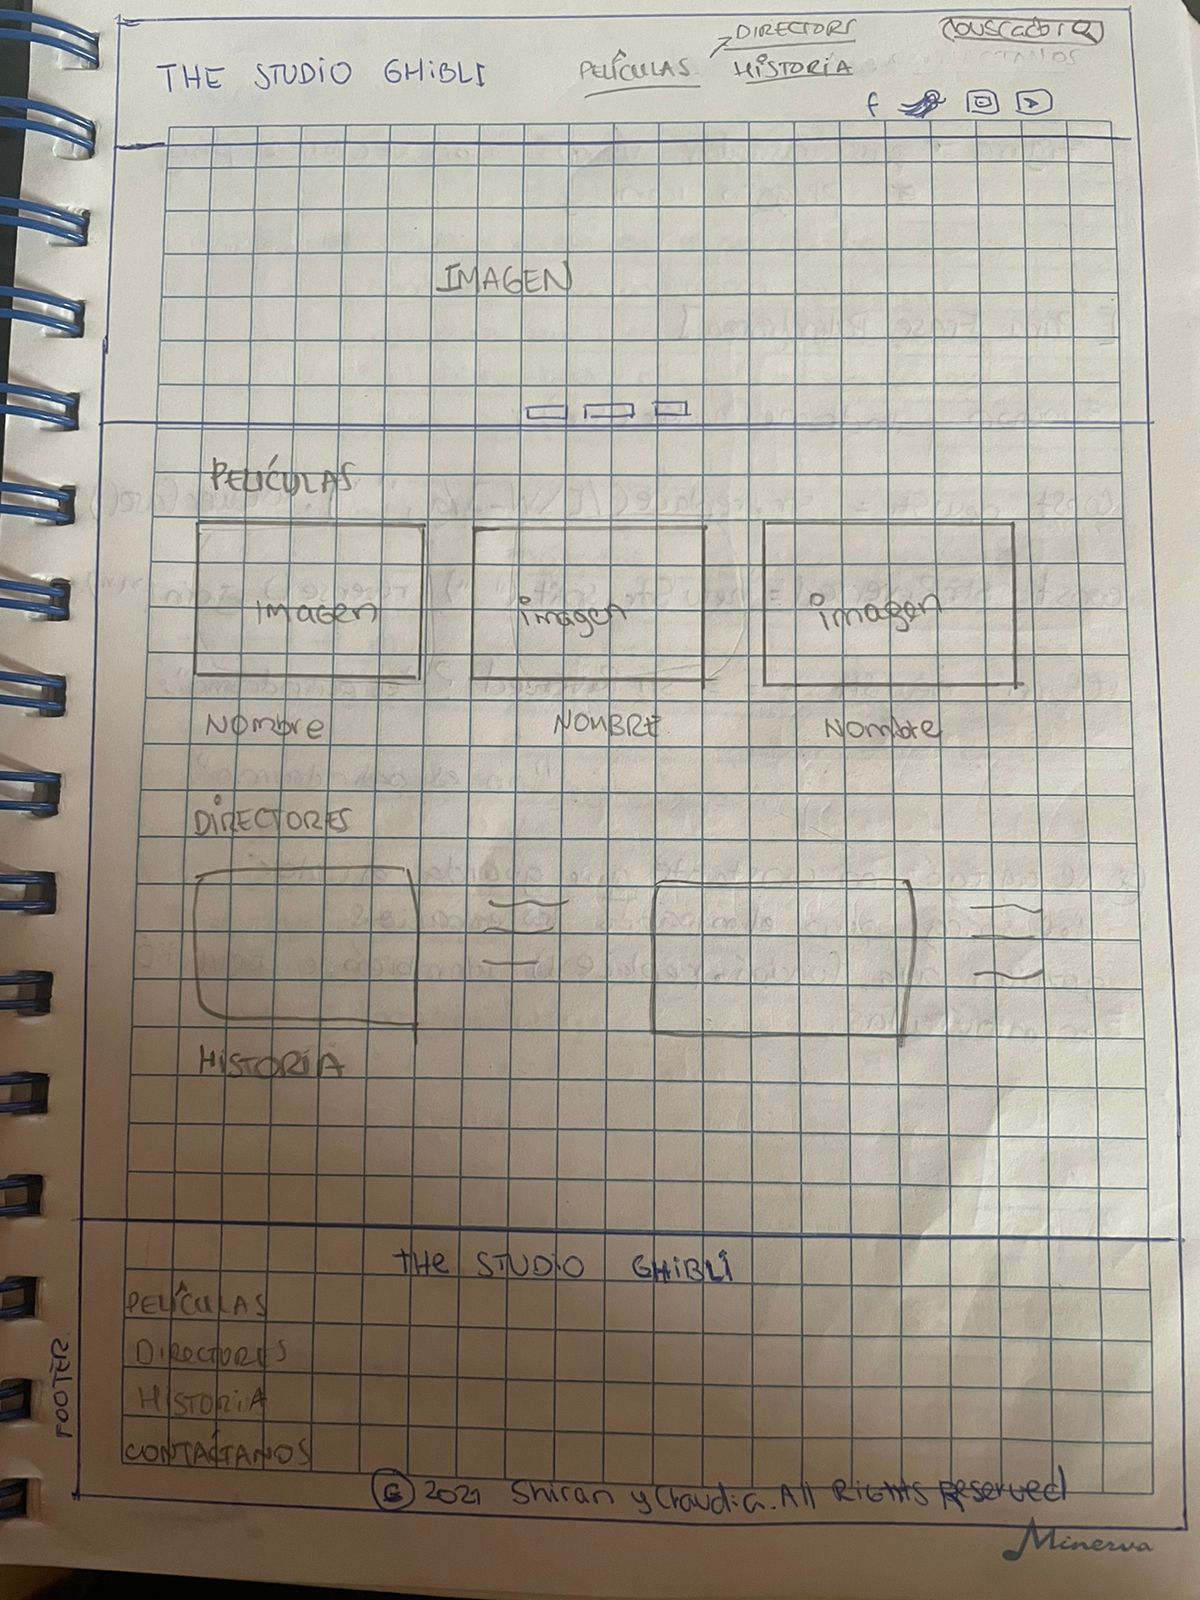 THE STUDIO GHIBLI
PELÍCULAS
DIRECTORS
HISTORIA
f
IMAGEN
PELÍCULAS
imagen imagen imagen
Nombre NOMBRE Nombre
DIRECTORES
HISTORIA
THE STUDIO GHIBLI
PELÍCULAS
DIRECTORES
HISTORIA
CONTÁCTANOS
FOOTER
© 2021 Shiran y Claudia. All Rights Reserved
Minerva